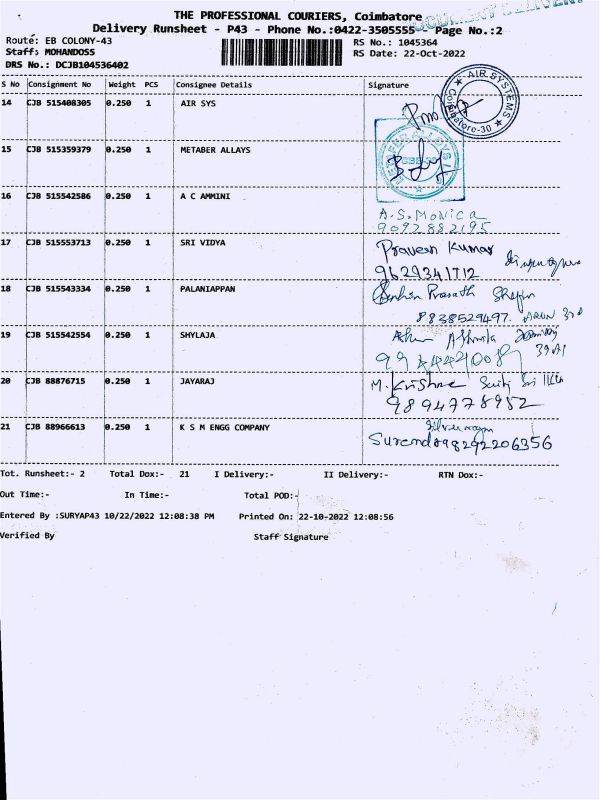 THE PROFESSIONAL COURIERS, Coimbatore
Delivery Runsheet - P43 - Phone No.:0422-3505555 - Page No.:2
Route: EB COLONY-43
RS No.: 1045364
Staff: MOHANDOSS
RS Date: 22-Oct-2022
DRS No.: DCJB104536402
S No Consignment No Weight PCS Consignee Details Signature
14 CJB 515408305 0.250 1 AIR SYS
AIR SYSTEMS
Coimbatore-30
15 CJB 515359379 0.250 1 METABER ALLAYS
16 CJB 515542586 0.250 1 A C AMMINI
A.S. Monica
9092882195
17 CJB 515553713 0.250 1 SRI VIDYA
Praveen Kumar
9629341712
18 CJB 515543334 0.250 1 PALANIAPPAN
Prasath
8838529497. ARUN
19 CJB 515542554 0.250 1 SHYLAJA
20 CJB 88876715 0.250 1 JAYARAJ
M. Krishna
9894778952
21 CJB 88966613 0.250 1 K S M ENGG COMPANY
Tot. Runsheet:- 2 Total Dox:- 21 I Delivery:- II Delivery:- RTN Dox:-
Out Time:- In Time:- Total POD:-
Entered By :SURYAP43 10/22/2022 12:08:38 PM Printed On: 22-10-2022 12:08:56
Verified By Staff Signature